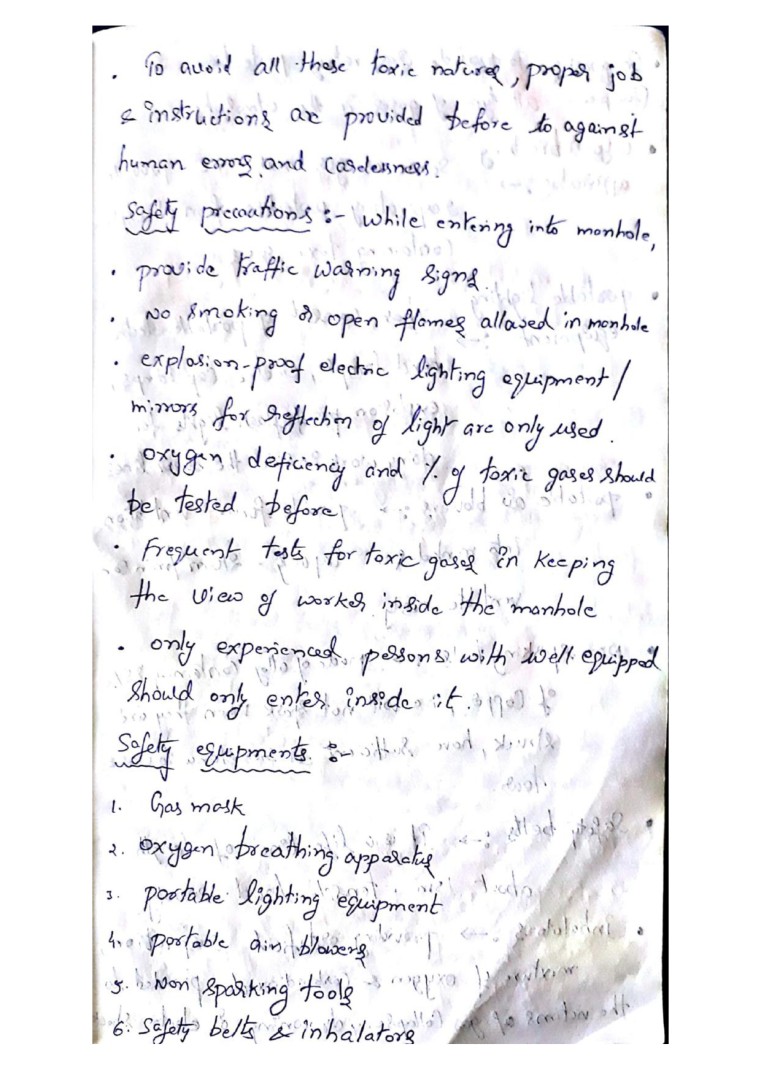 . To avoid all these toxic natures, proper job
& instructions are provided before to against
human errors and carelessness.
Safety precautions :- while entering into manhole,
. provide traffic warning signs.
. No smoking or open flames allowed in manhole
. explosion-proof electric lighting equipment /
mirrors for reflection of light are only used.
. oxygen deficiency and % of toxic gases should
be tested before
. Frequent tests for toxic gases in keeping
the view of worker inside the manhole
. only experienced persons with well equipped
should only enter inside it.
Safety equipments :-
1. Gas mask
2. oxygen breathing apparatus
3. portable lighting equipment
4. portable air blowers
5. Non sparking tools
6. Safety belts & inhalators